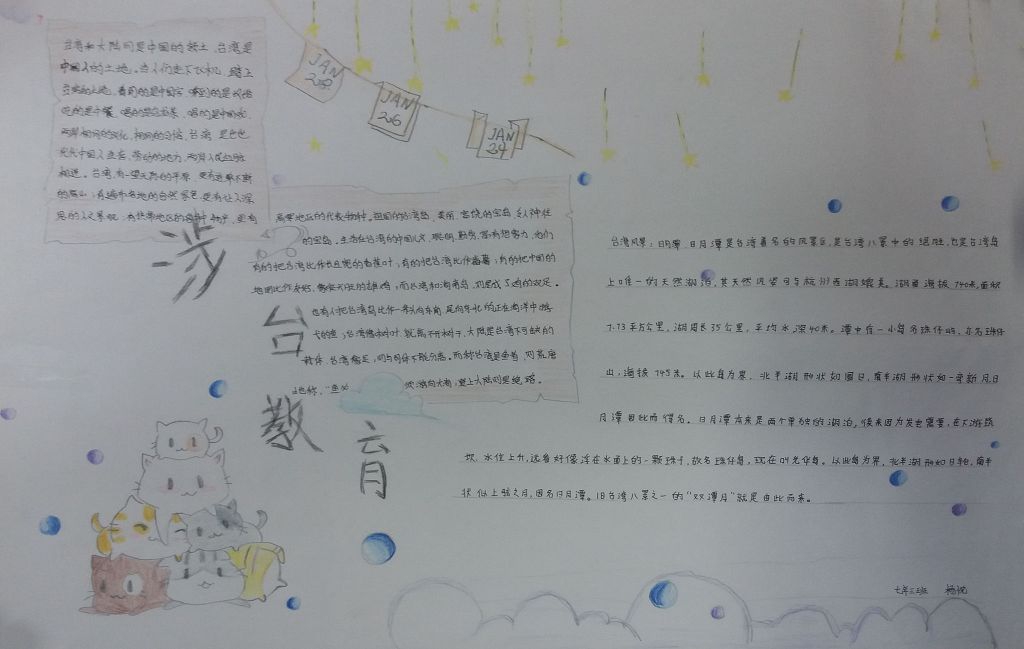 台湾和大陆同是中国的领土，台湾是
中国人的土地。当人们走下飞机，踏上
台湾的土地，看到的是中国字，听到的是
吃的是中餐，唱的是中国歌，
两岸相同的文化，相同的习俗，台湾是也
中国人生存、劳动的地方，两岸人民血脉
相连。台湾，有一望无际的平原，更有连绵不断
的高山；有遍布各地的自然景色，更有让人深
思的人文景观；有热带地区的物种，更有
JAN
2018
JAN
206
JAN
24
高寒地区的代表物种。祖国的台湾岛，美丽、富饶的宝岛，令人神往
的宝岛。生活在台湾的中国儿女，聪明、勤劳、富有想象力，他们
有的把台湾比作长且宽的香蕉叶；有的把台湾比作番薯；有的把中国的
地图比作的雄鸡；而台湾和海南岛，则是成了鸡的双足。
也有人把台湾岛比作一条头向东南，尾向东北的正在海洋中游
弋的鱼；台湾像树叶，就离不开树干，大陆是台湾不可缺的
躯体；台湾像足，则与母体不能分离。而称台湾是鱼者，则
地称，“鱼
游向大海，望上大陆则是绝路。
涉
台
教
育
台湾风景：日月潭，日月潭是台湾著名的风景区，是台湾八景中的绝胜，也是台湾岛
上唯一的天然湖泊，其天然风姿可与杭州西湖媲美。湖面海拔740米，面积
7.73平方公里，湖周长35公里，平均水深40米。潭中有一小岛名珠仔屿，亦名珠仔
山，海拔745米。以此岛为界，北半湖形状如圆日，南半湖形状如一弯新月，日
月潭因此而得名。日月潭本来是两个单独的湖泊，后来因为发电需要，在下游筑
坝，水位上升，远看好像浮在水面上的一颗珠子，故名珠仔岛，现在叫光华岛。以此岛为界，北半湖形如日轮，南半
状似上弦之月，因名日月潭。旧台湾八景之一的“双潭月”就是由此而来。
七年三班